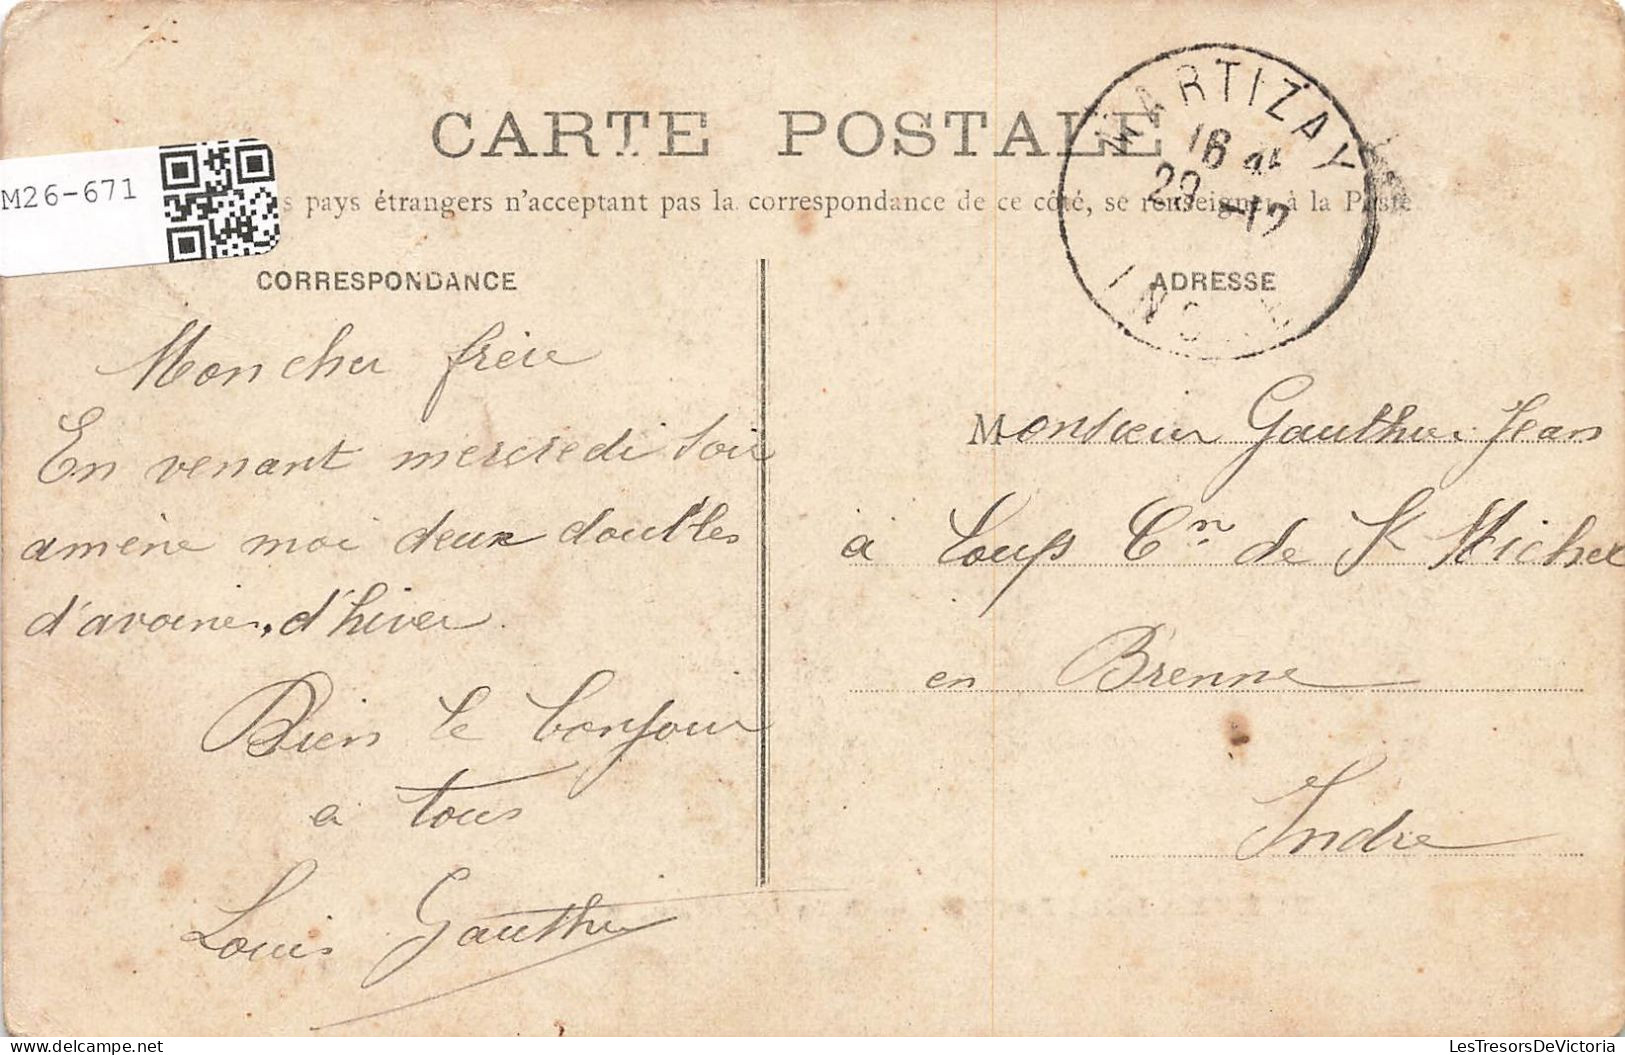 CARTE POSTALE
M26-671
s pays étrangers n'acceptant pas la correspondance de ce côté, se renseigner à la Poste
MARTIZAY
29 -12
CORRESPONDANCE
ADRESSE
Mon cher frère
En venant mercredi soir
amène moi deux doubles
d'avoine, d'hiver.
Bien le bonjour
a tous
Louis Gauthier
Monsieur Gauthier Jean
à Loups Cn de St Michel
en Brenne
Indre
LesTresorsDeVictoria
delcampe.net